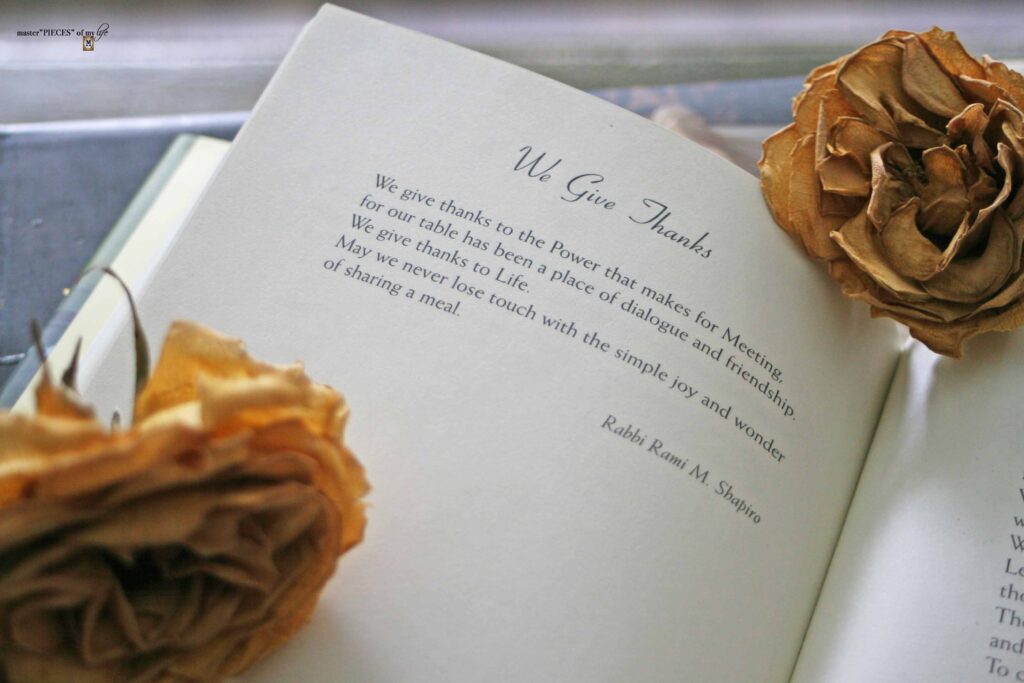 master"PIECES" of my life
We Give Thanks
We give thanks to the Power that makes for Meeting,
for our table has been a place of dialogue and friendship.
We give thanks to Life.
May we never lose touch with the simple joy and wonder
of sharing a meal.
Rabbi Rami M. Shapiro
and
To